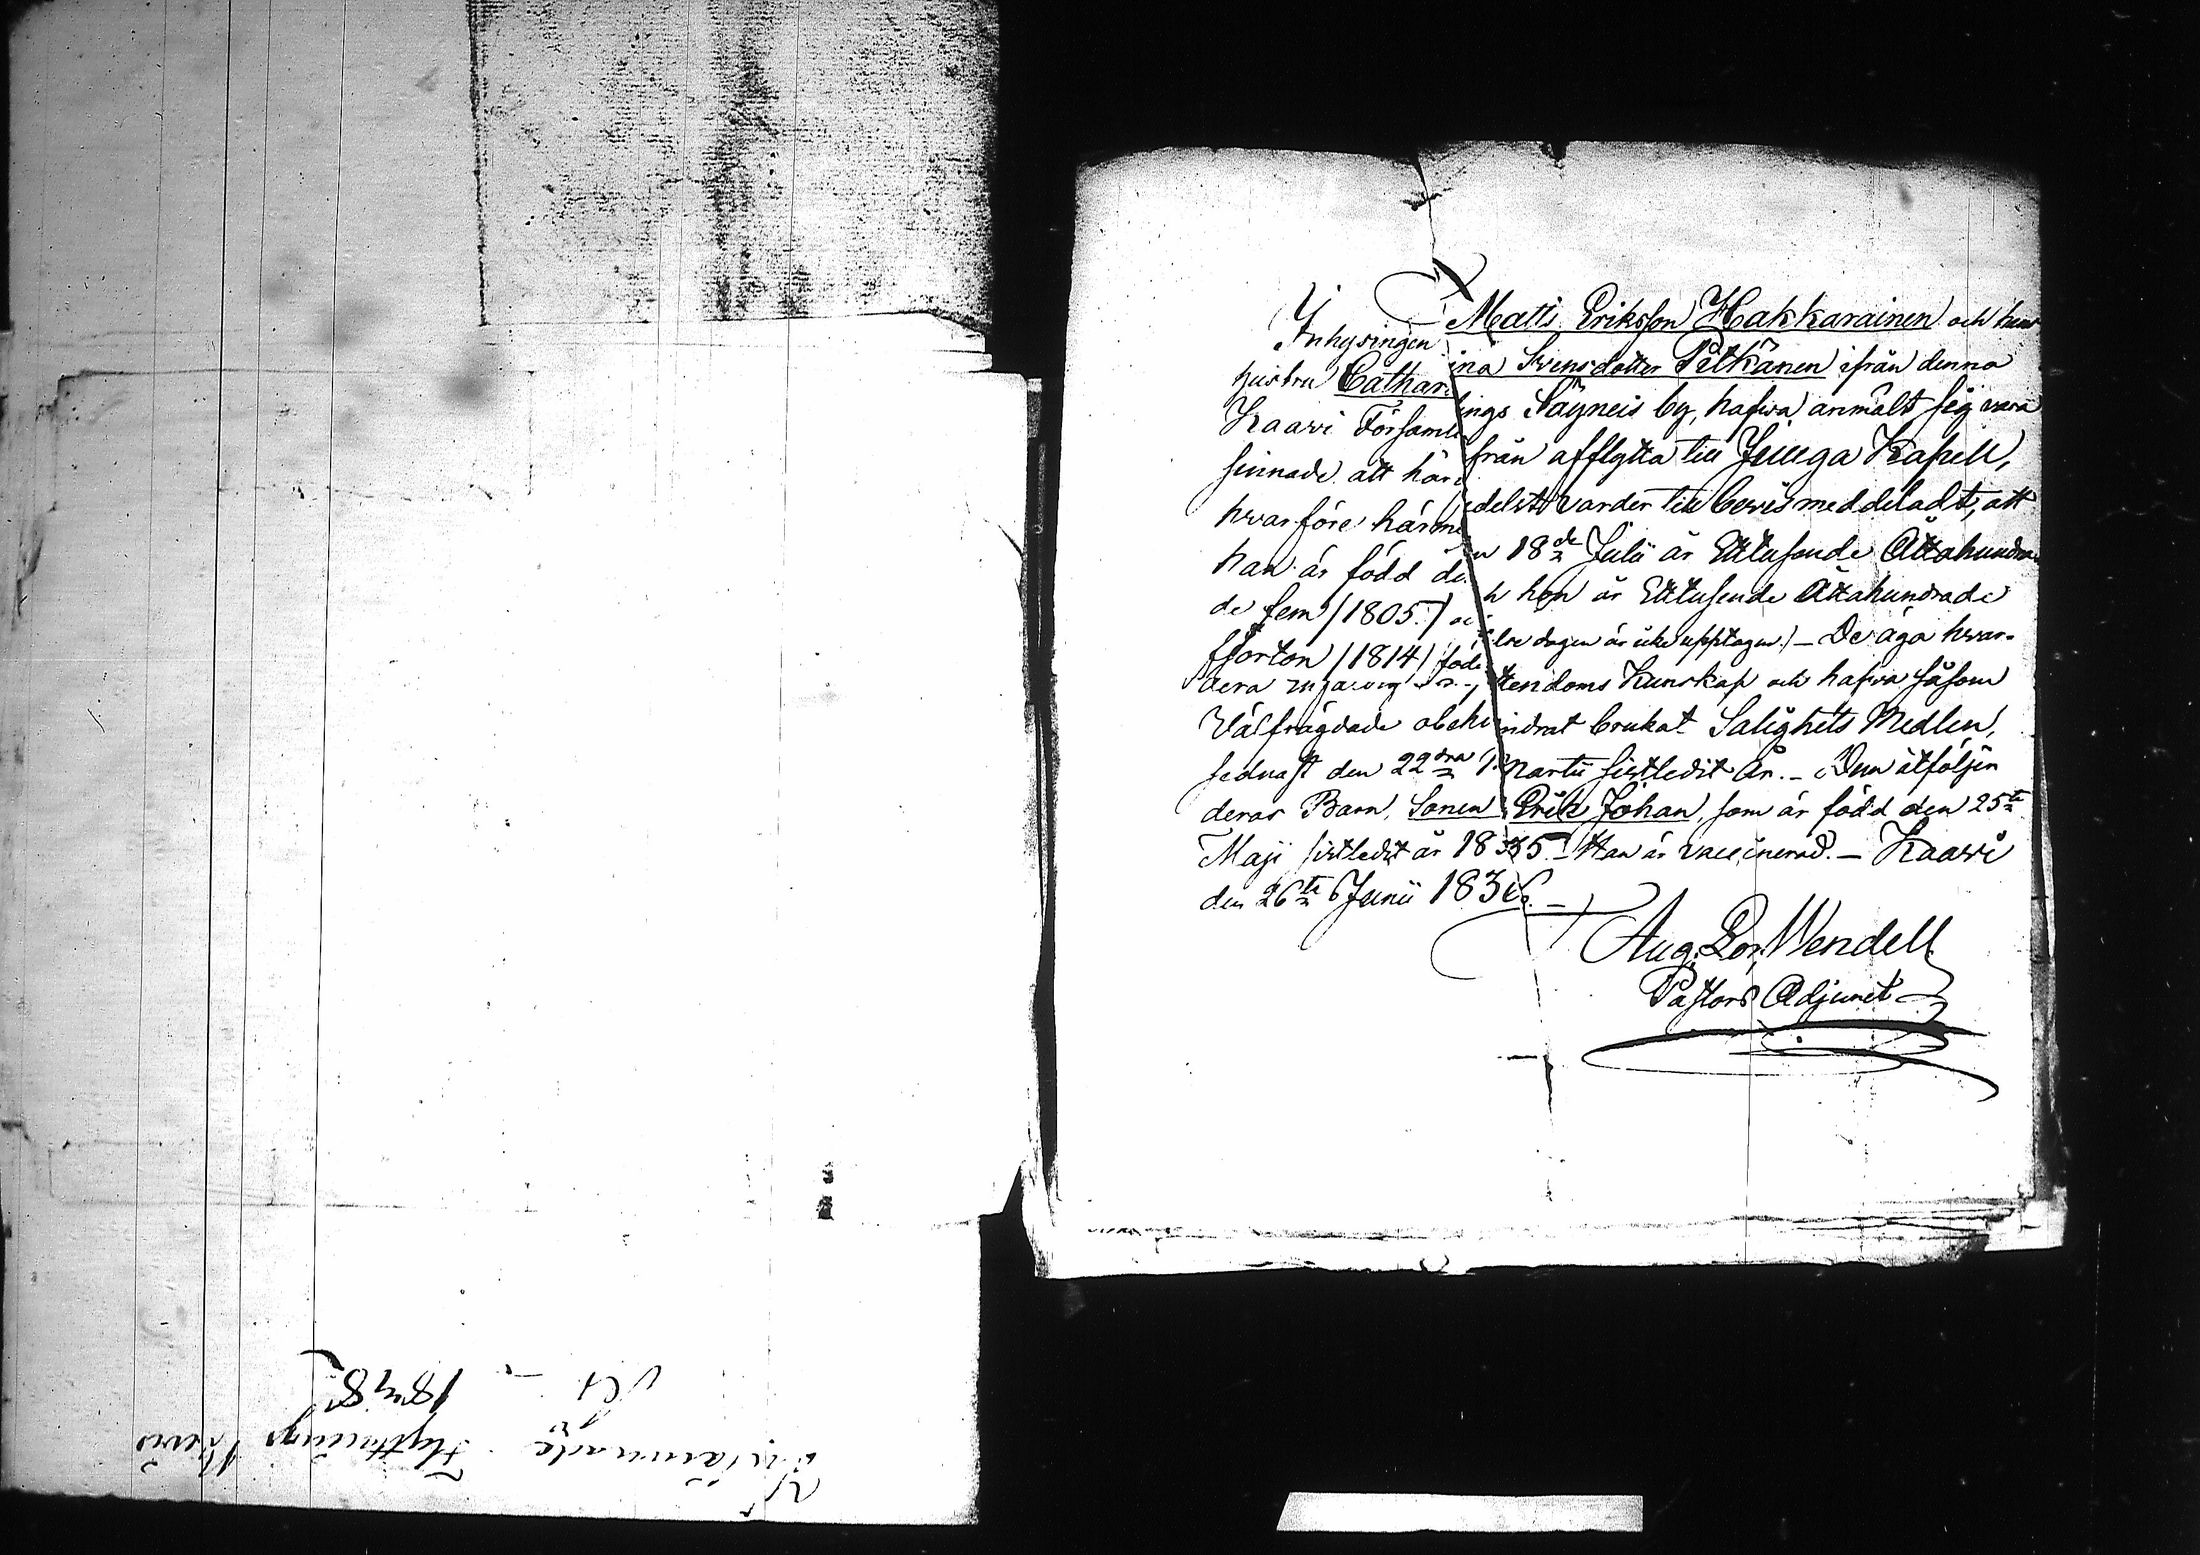 Inlämnade Flyttnings Bevis
1848
Inhysingen Matts Eriksson Hakkarainen och hans
hustru Catharina Svensdotter Pitkänen ifrån denna
Kaavi Församlings Säyneis by, hafva anmält sig vara
sinnade att härifrån afflytta till Juuga Kapell,
hvarföre härmedelst varder till bevis meddeladt, att
han är född den 18de Julii år Ettusende Åttahundra-
de fem (1805.) och hon år Ettusende Åttahundrade
fjorton (1814) född dagen är icke upptagen.) – De äga hvar-
dera Christendoms Kunskap och hafva såsom
Välfrägdade obehindrat brukat Salighets Medlen,
sednast den 22dra Martii sistledit år. – Dem åtföljer
deras Barn, Sonen Erik Johan, som är född den 25te
Maji sistledit år 1835. – Han är vaccinerad. – Kaavi
den 26te Junii 1836. –
Aug. Lor. Wendell
Pastors Adjunct